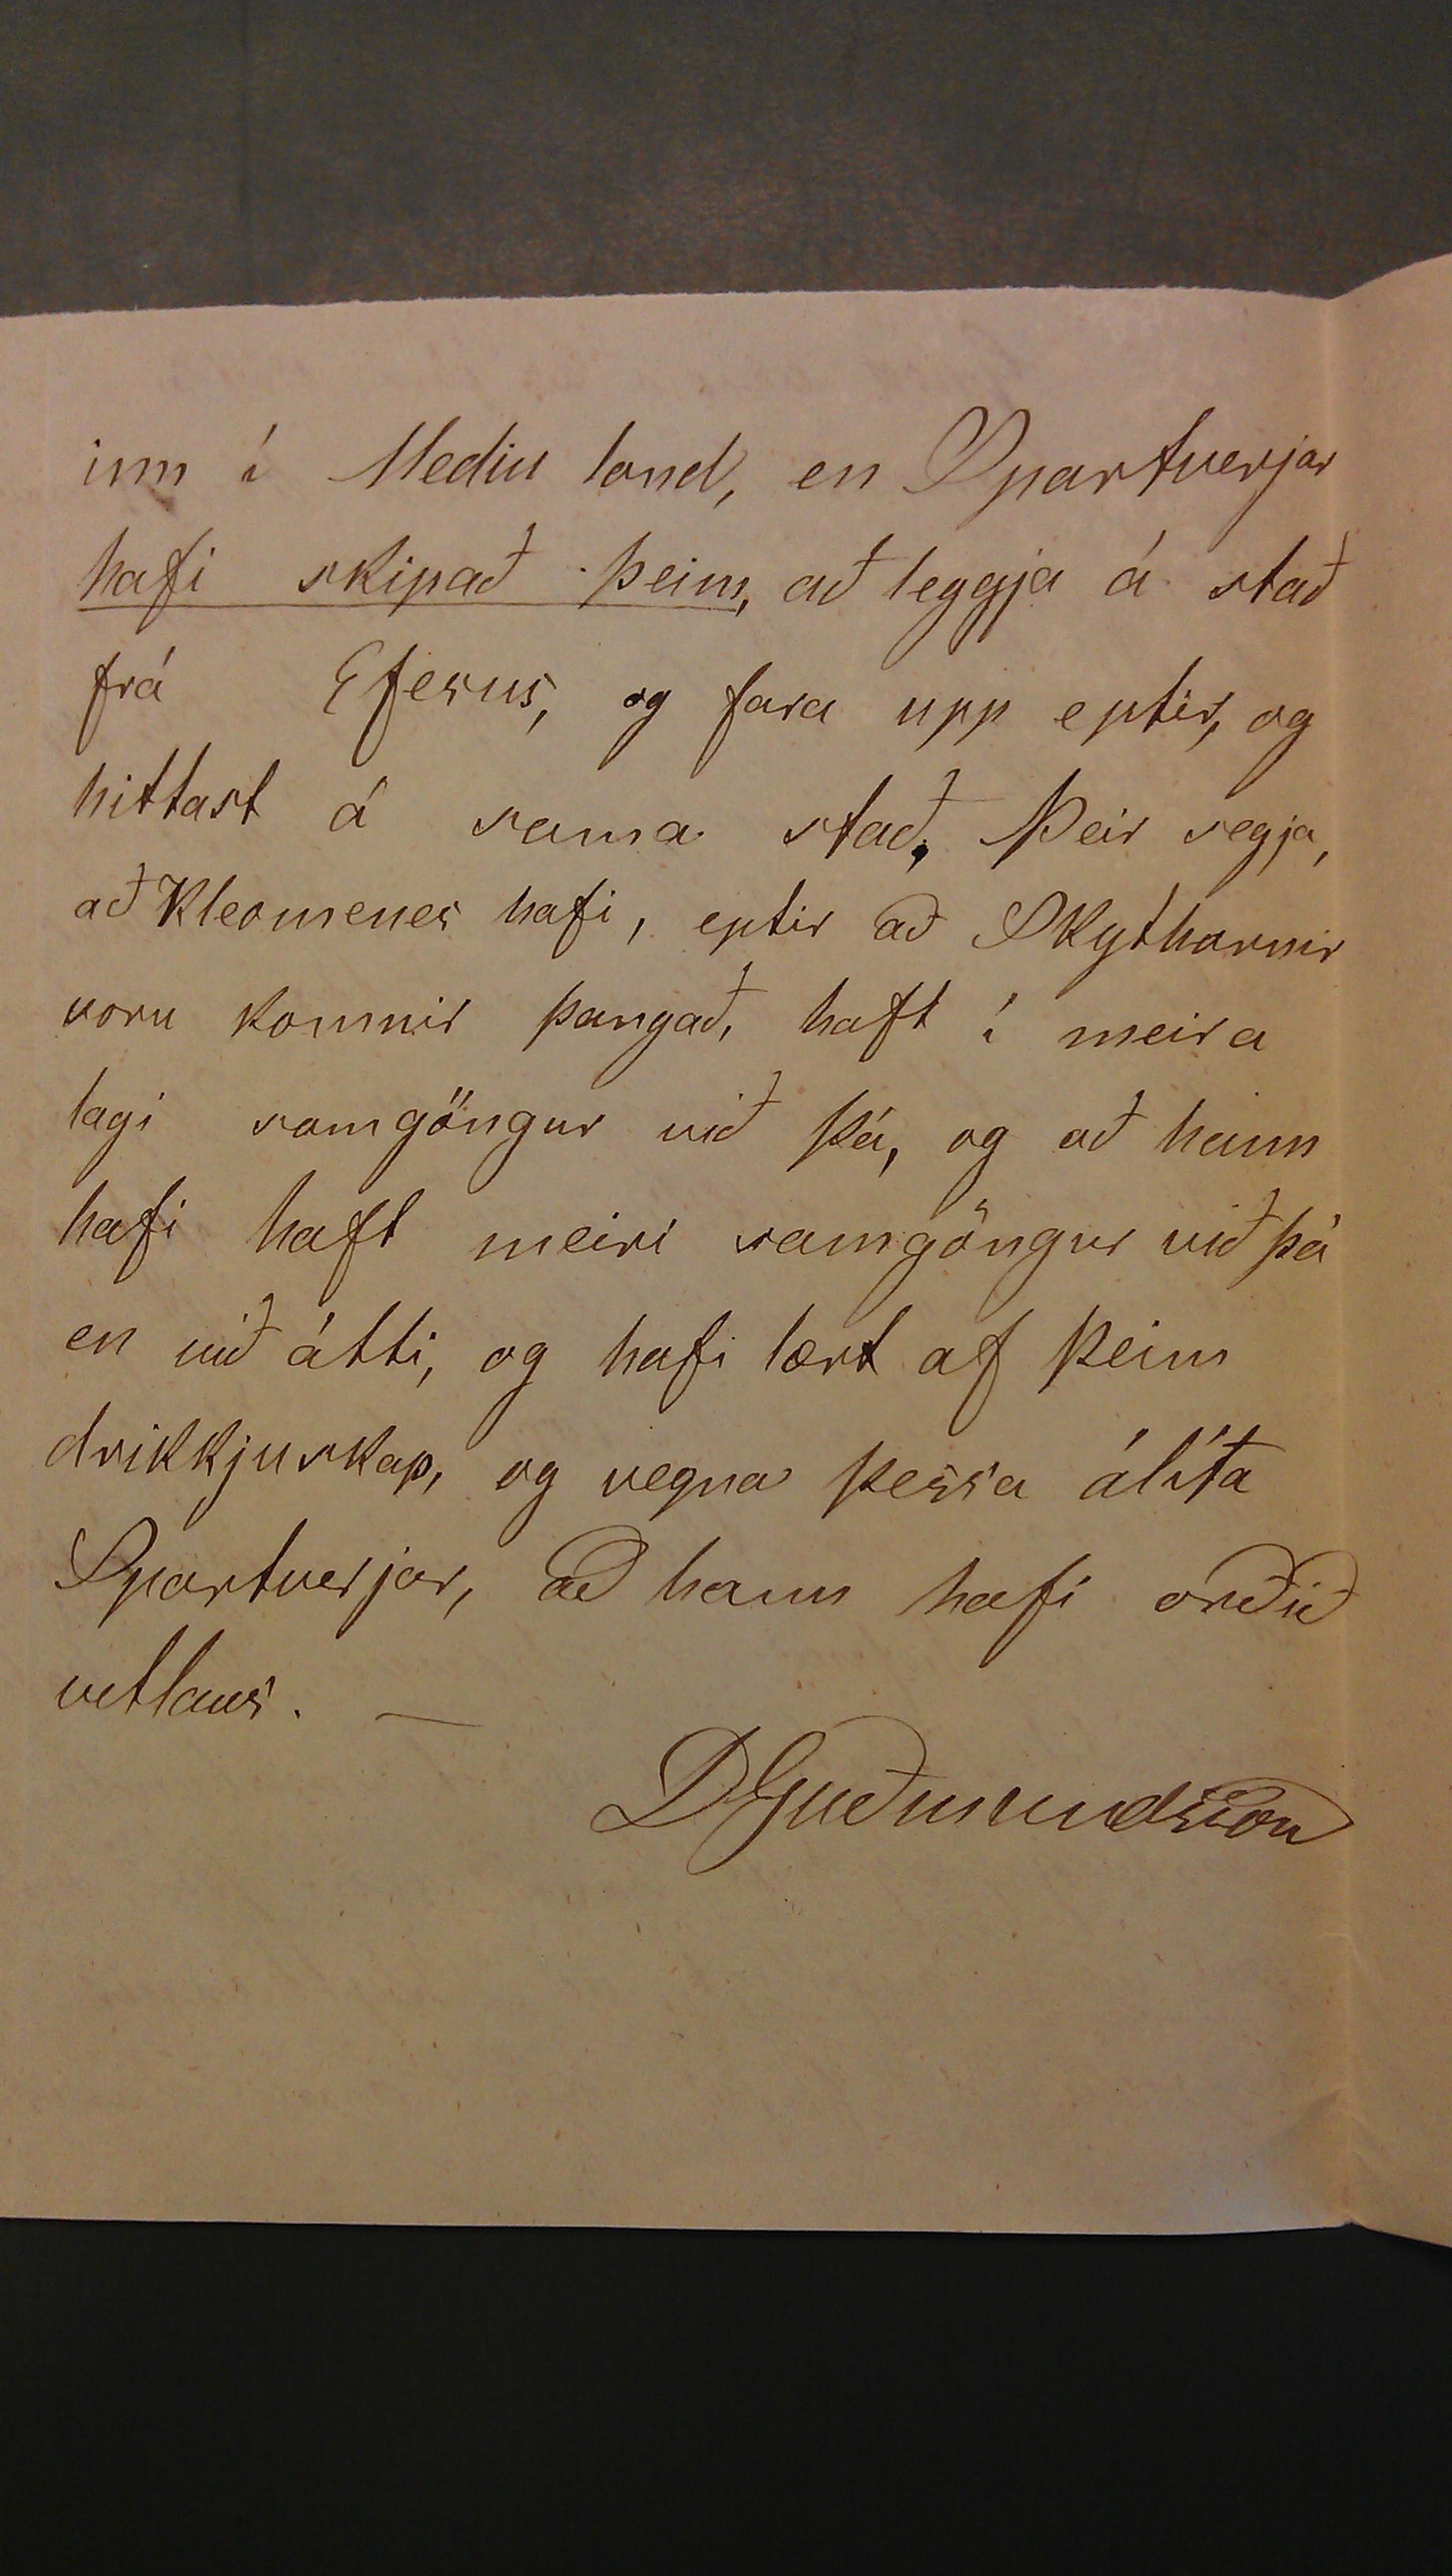 inn í Mediu land, en Spartverjar
hafi skipað þeim, að leggja á stað
frá Efesus, og fara upp eptir, og
hittast á sama stað. Þeir segja,
að Kleomenes hafi, eptir að Skytharnir
voru komnir þangað, haft í meira
lagi samgöngur við þá, og að hann
hafi haft meiri samgöngur við þá
en við átti, og hafi lært af þeim
drikkjuskap, og vegna þessa álíta
Spartverjar, að hann hafi orðið
vitlaus. —
DGuðmundsson